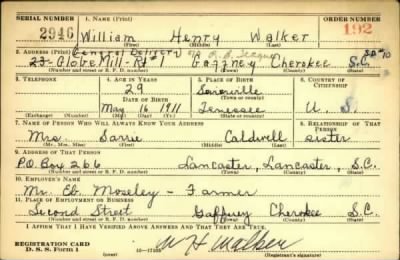 SERIAL NUMBER 1. NAME (Print) ORDER NUMBER
2946 William Henry Walker 192
(First) (Middle) (Last)
2. ADDRESS (Print) General Delivery
23- Globe Mill - Rt #1 Gaffney Cherokee S.C.
(Number and street or R. F. D. number) (Town) (County) (State)
3. TELEPHONE 4. AGE IN YEARS 5. PLACE OF BIRTH 6. COUNTRY OF CITIZENSHIP
29 Sevierville
DATE OF BIRTH (Town or county)
May 16 1911 Tenessee U. S.
(Exchange) (Number) (Mo.) (Day) (Yr.) (State or country)
7. NAME OF PERSON WHO WILL ALWAYS KNOW YOUR ADDRESS 8. RELATIONSHIP OF THAT PERSON
Mrs. Carrie Caldwell sister
(Mr., Mrs., Miss) (First) (Middle) (Last)
9. ADDRESS OF THAT PERSON
P.O. Box 266 Lancaster, Lancaster, S.C.
(Number and street or R. F. D. number) (Town) (County) (State)
10. EMPLOYER'S NAME
Mr. Eb. Moseley - Farmer
11. PLACE OF EMPLOYMENT OR BUSINESS
Second Street Gaffney Cherokee S.C.
(Number and street or R. F. D. number) (Town) (County) (State)
I AFFIRM THAT I HAVE VERIFIED ABOVE ANSWERS AND THAT THEY ARE TRUE.
REGISTRATION CARD
D. S. S. Form 1 W H Walker
(Registrant's signature)